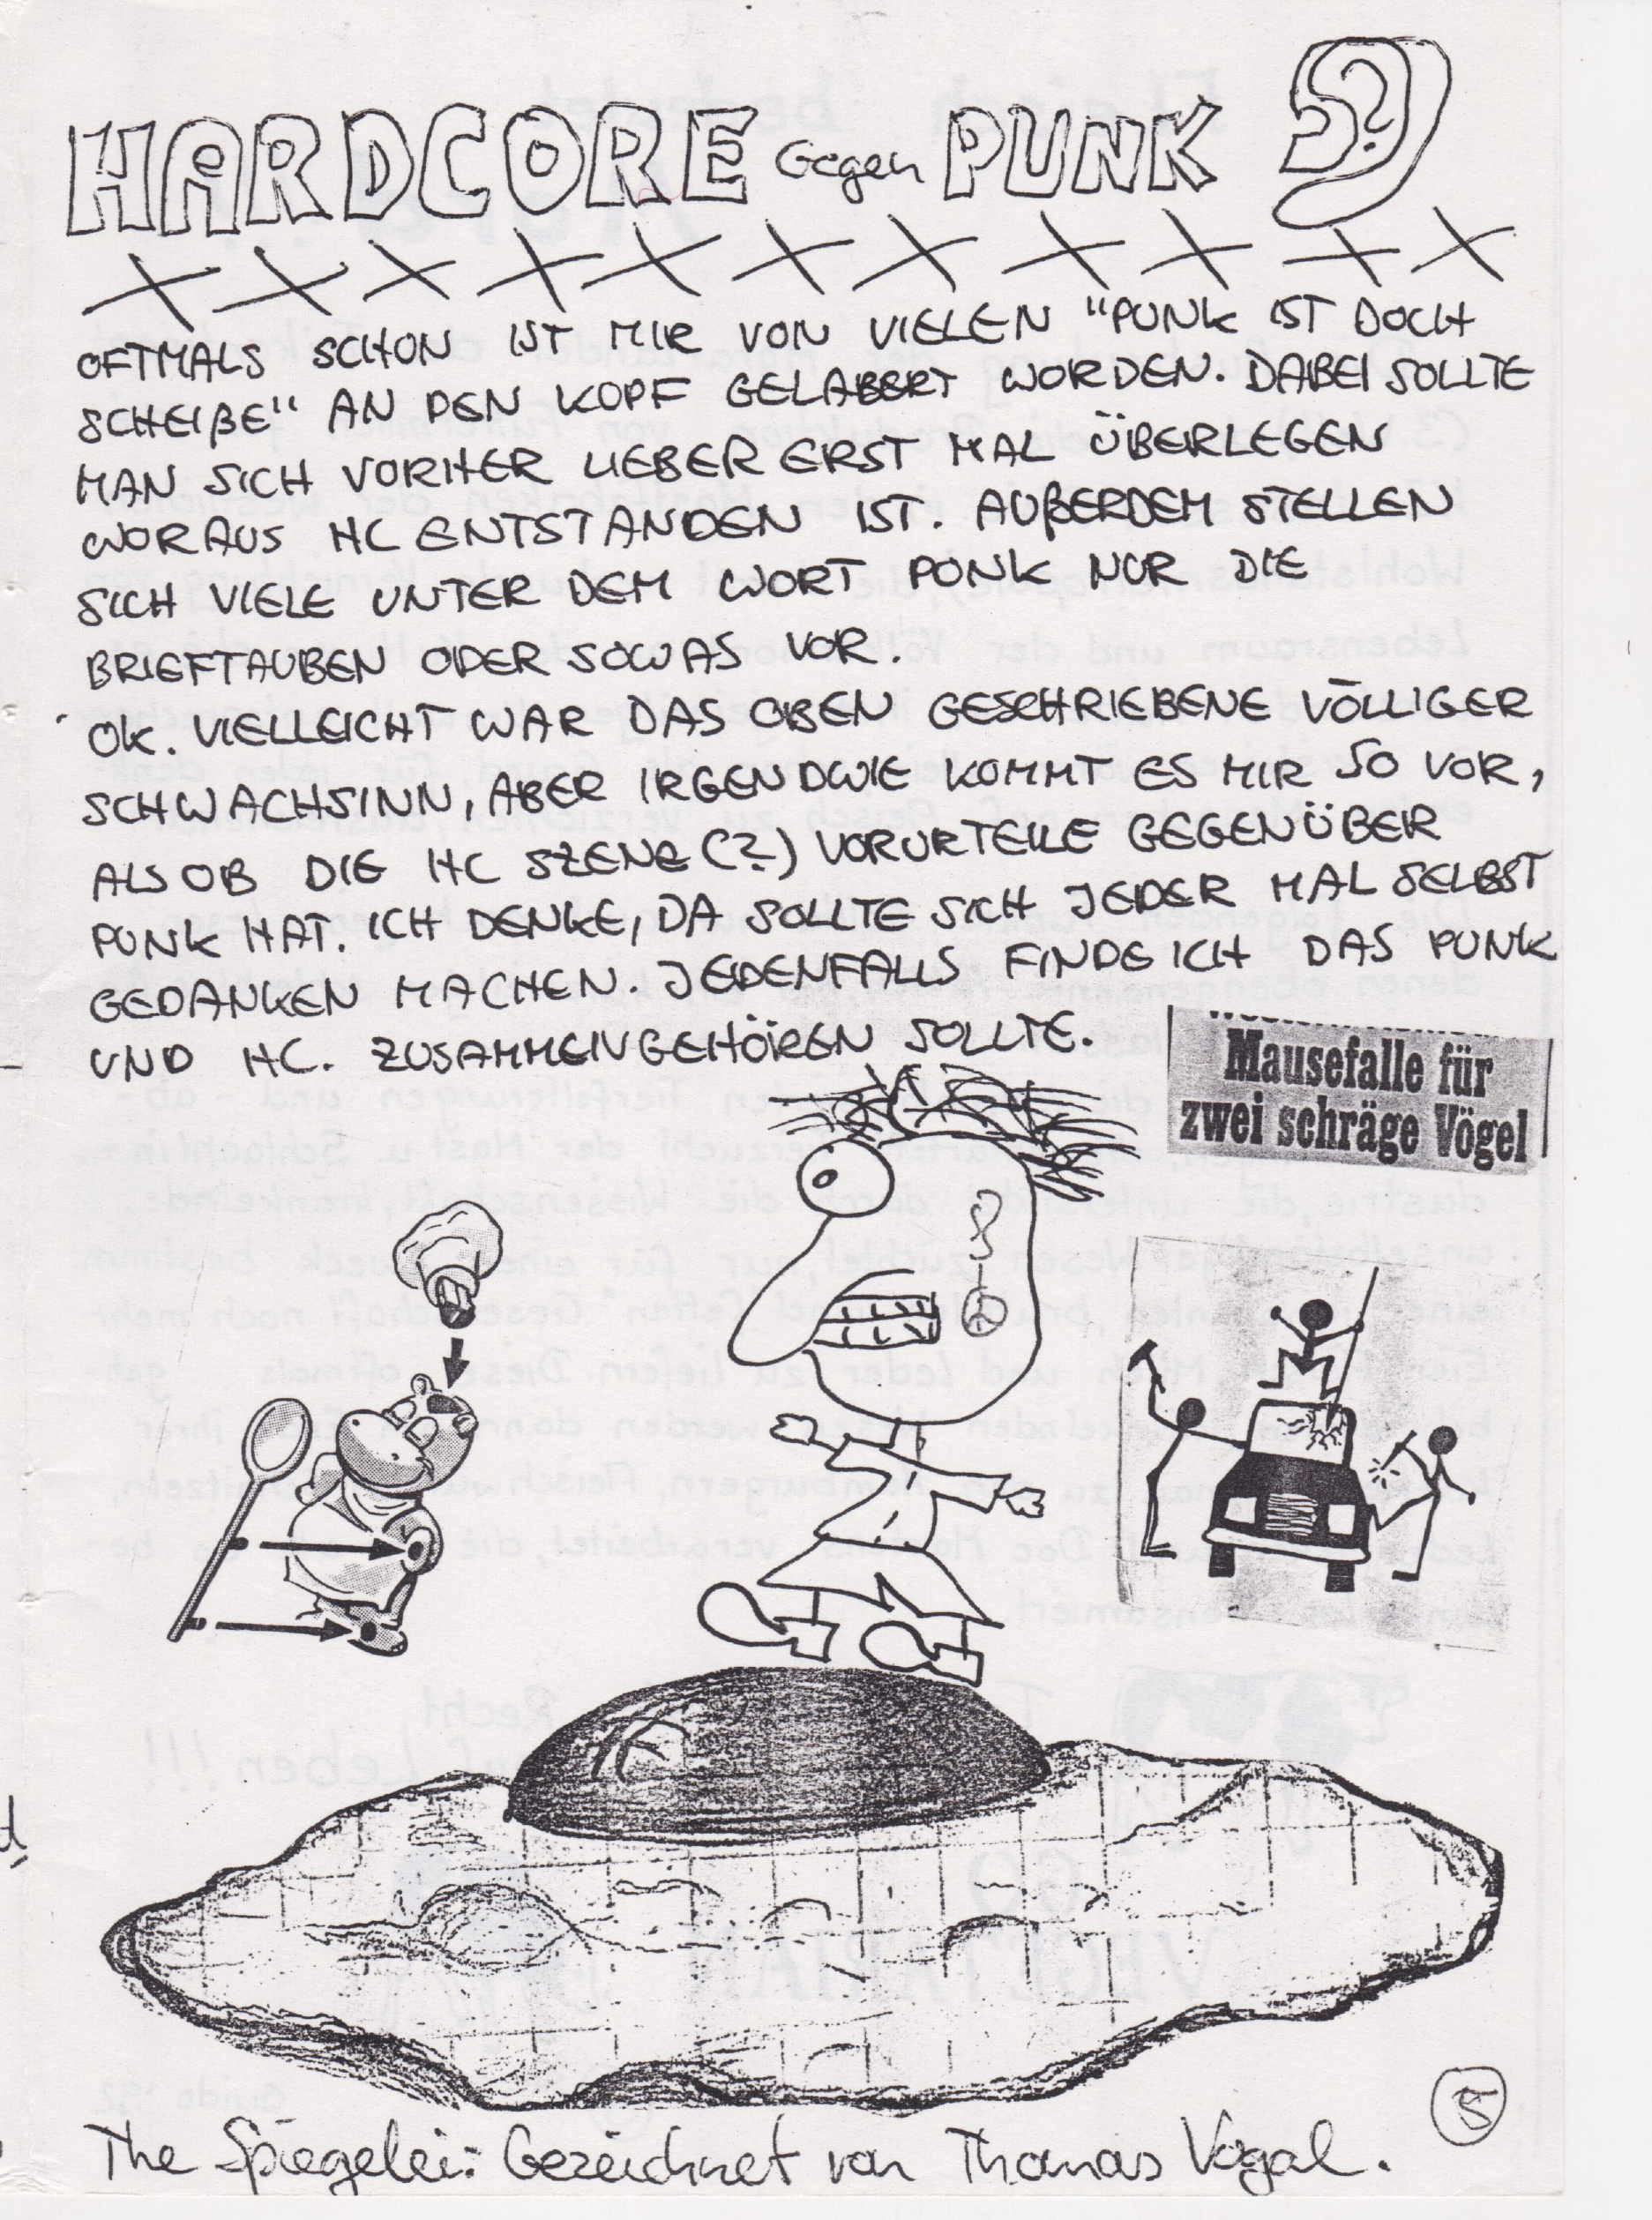 HARDCORE Gegen PUNK ?
X X X X X X X X X X X
OFTMALS SCHON IST MIR VON VIELEN "PUNK IST DOCH
SCHEIßE" AN DEN KOPF GELABERT WORDEN. DABEI SOLLTE
MAN SICH VORHER LIEBER ERST MAL ÜBERLEGEN
WORAUS HC ENTSTANDEN IST. AUßERDEM STELLEN
SICH VIELE UNTER DEM WORT PUNK NUR DIE
BRIEFTAUBEN ODER SOWAS VOR.
OK. VIELLEICHT WAR DAS OBEN GESCHRIEBENE VÖLLIGER
SCHWACHSINN, ABER IRGENDWIE KOMMT ES MIR SO VOR,
ALS OB DIE HC SZENE (?) VORURTEILE GEGENÜBER
PUNK HAT. ICH DENKE, DA SOLLTE SICH JEDER MAL SELBST
GEDANKEN MACHEN. JEDENFALLS FINDE ICH DAS PUNK
UND HC. ZUSAMMENGEHÖREN SOLLTE.
Mausefalle für
zwei schräge Vögel
The Spiegelei: Gezeichnet von Thomas Vogel.
5